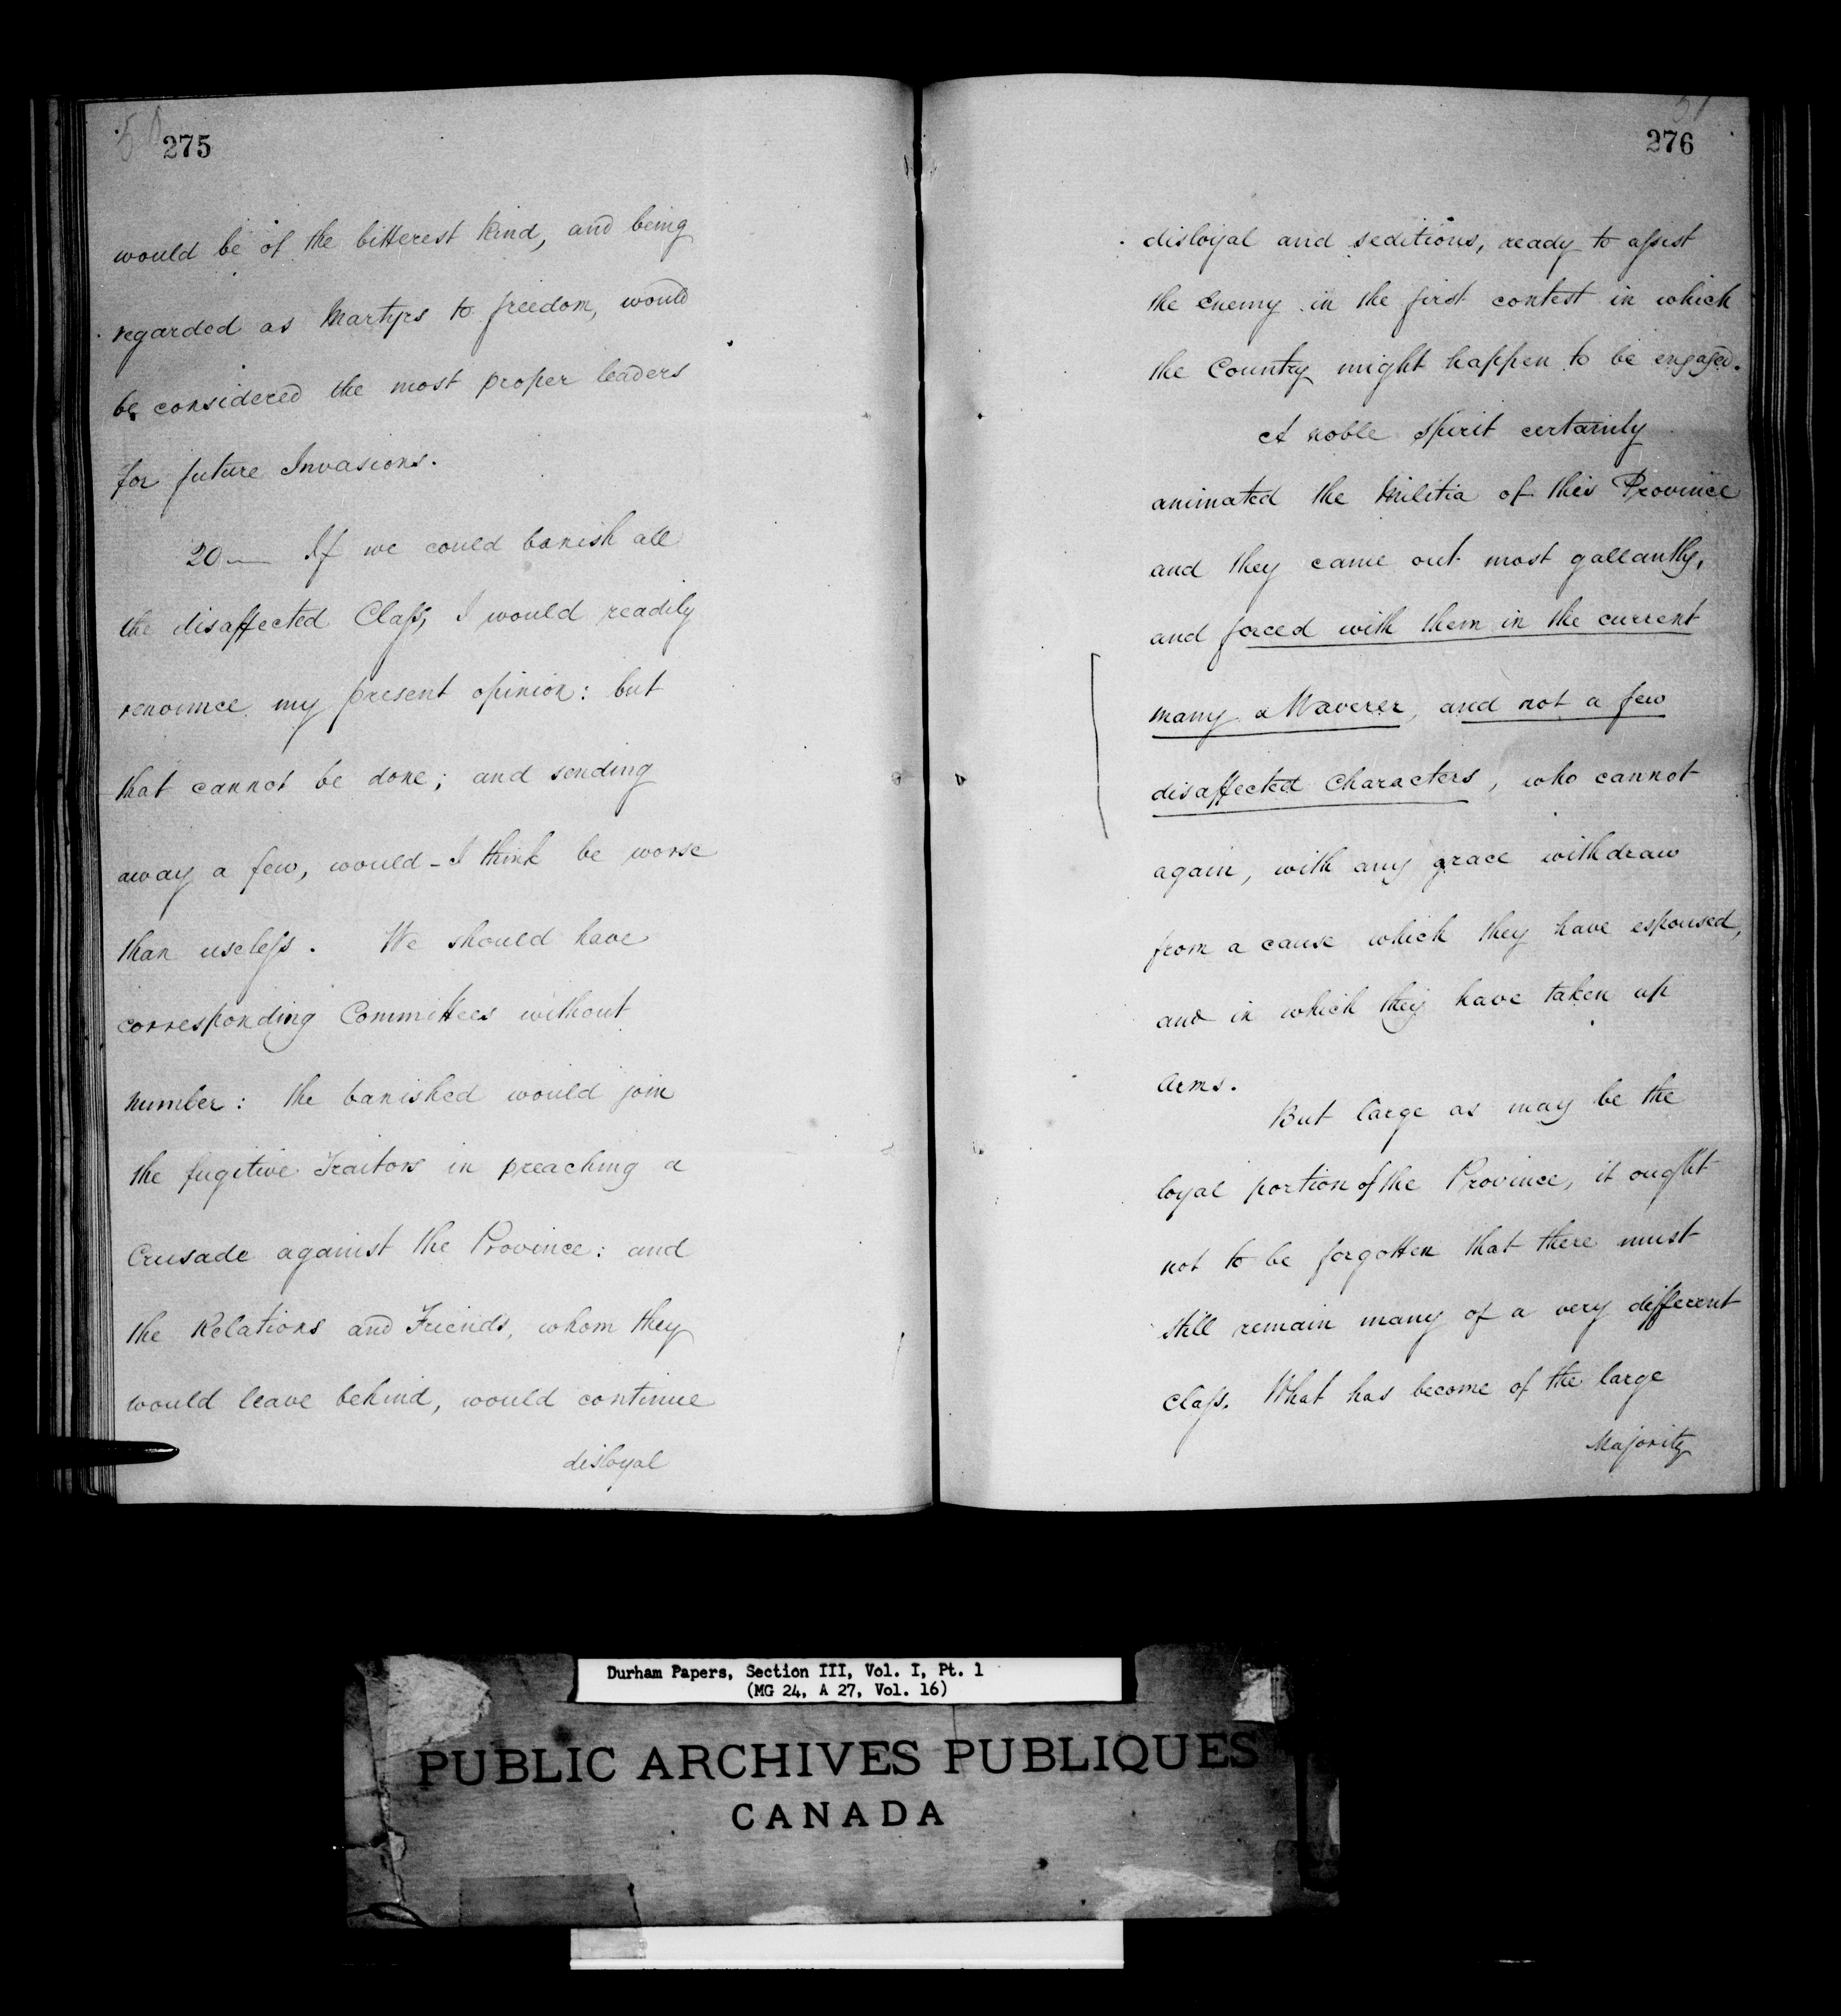 50
275
would be of the bitterest kind, and being
regarded as Martyrs to freedom, would
be considered the most proper leaders
for future Invasions.
20— If we could banish all
the disaffected Class, I would readily
renounce my present opinion: but
that cannot be done; and sending
away a few, would - I think be worse
than useless. We should have
corresponding Committees without
number: the banished would join
the fugitive Traitors in preaching a
Crusade against the Province: and
the Relations and Friends, whom they
would leave behind, would continue
disloyal
51
276
disloyal and seditious, ready to assist
the Enemy in the first contest in which
the Country might happen to be engaged.
A noble spirit certainly
animated the Militia of this Province
and they came out most gallantly,
and forced with them in the current
many a Waverer, and not a few
disaffected Characters, who cannot
again, with any grace withdraw
from a cause which they have espoused,
and in which they have taken up
Arms.
But large as may be the
loyal portion of the Province, it ought
not to be forgotten that there must
still remain many of a very different
class. What has become of the large
Majority
Durham Papers, Section III, Vol. I, Pt. 1
(MG 24, A 27, Vol. 16)
PUBLIC ARCHIVES PUBLIQUES
CANADA